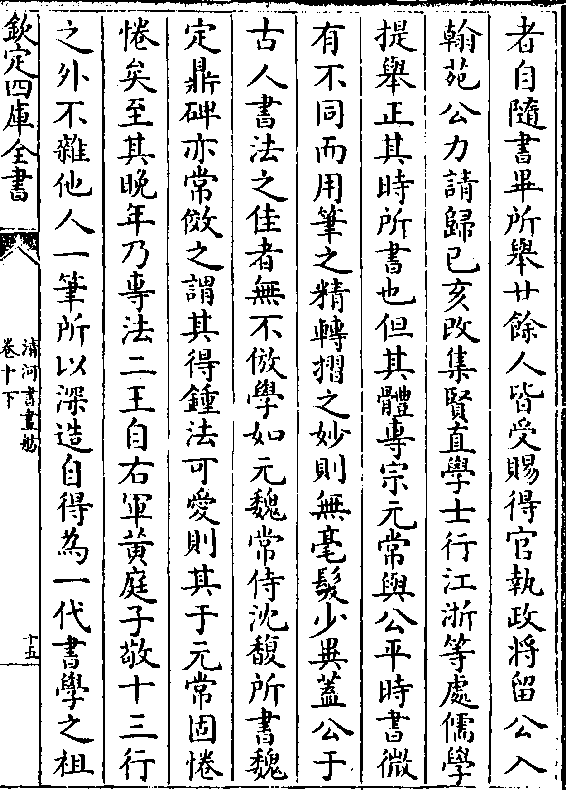 者自隨書畢所舉廿餘人皆受賜得官執政將留公入
翰苑公力請歸已亥改集賢直學士行江浙等處儒學
提舉正其時所書也但其體專宗元常與公平時書微
有不同而用筆之精轉摺之妙則無毫髮少異蓋公于
古人書法之佳者無不倣學如元魏常侍沈馥所書魏
定鼎碑亦常倣之謂其得鍾法可愛則其于元常固惓
惓矣至其晚年乃專法二王自右軍黄庭子敬十三行
之外不雜他人一筆所以深造自得為一代書學之祖
欽定四庫全書
清河書畫舫
卷十下
十五